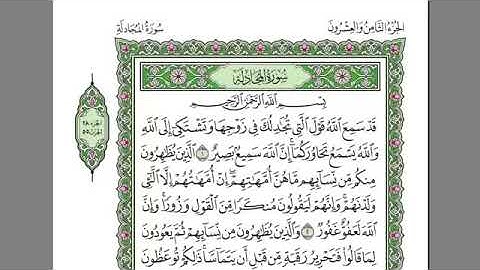 الجزء الثامن والعشرون
سورة المجادلة
سورة المجادلة
الجزء ٢٨
بسم الله الرحمن الرحيم
قد سمع الله قول التي تجادلك في زوجها وتشتكي إلى الله
والله يسمع تحاوركما إن الله سميع بصير ١ الذين يظاهرون
منكم من نسائهم ما هن أمهاتهم إن أمهاتهم إلا التي
ولدنهم وإنهم ليقولون منكرا من القول وزورا وإن
الله لعفو غفور ٢ والذين يظاهرون من نسائهم ثم يعودون
لما قالوا فتحرير رقبة من قبل أن يتماسا ذلكم توعظون